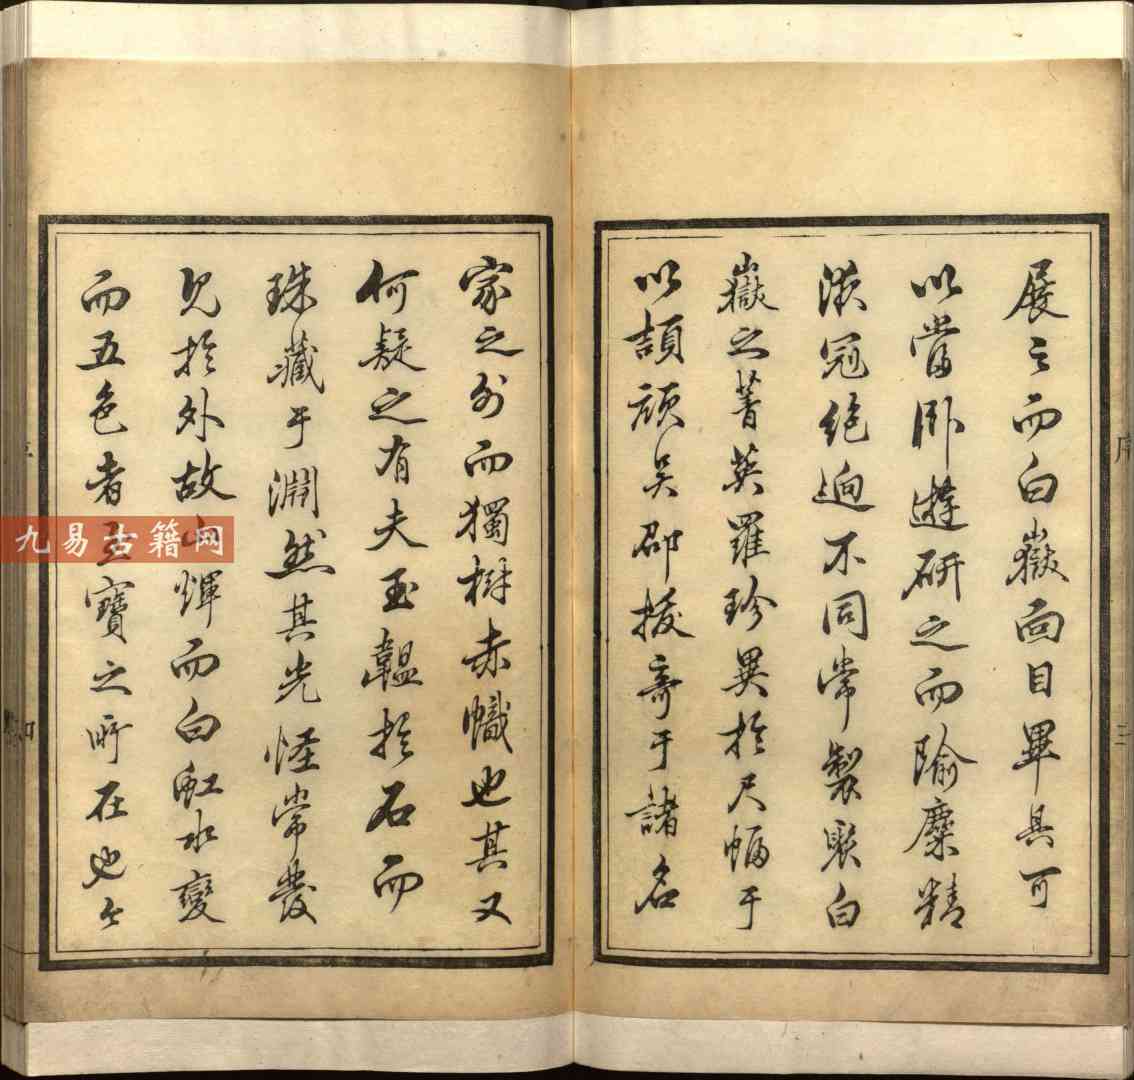 展之而白嶽面目畢具可
以當臥遊研之而隃麋精
液冠絕迥不同常製聚白
嶽之菁英羅珍異於尺幅于
以頡頏吳邵拔奇于諸名
家之外而獨樹赤幟也其又
何疑之有夫玉韞於石而
珠藏于淵然其光怪常發
見於外故山輝而白虹水變
而五色者至寶之所在也今
九易古籍网
序
二